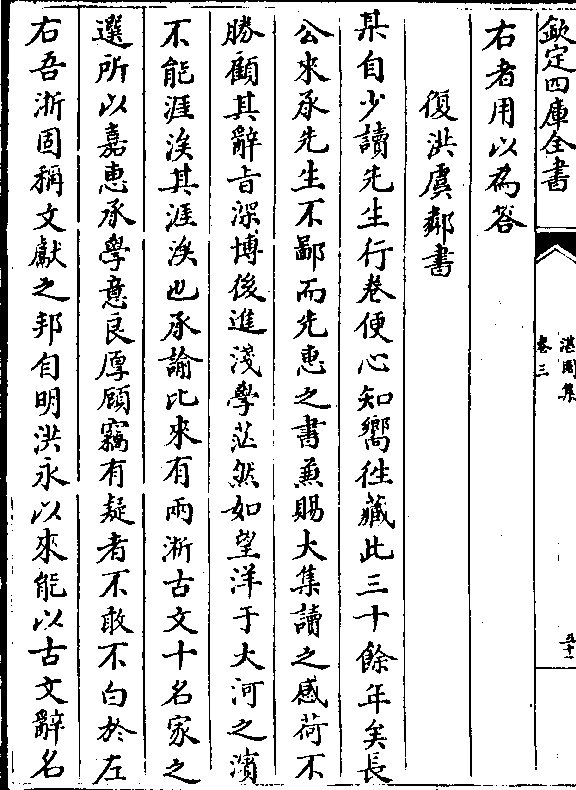 欽定四庫全書
湛園集
卷三
五十一
右者用以為答
復洪虞鄰書
某自少讀先生行卷便心知嚮徃藏此三十餘年矣長
公來承先生不鄙而先惠之書兼賜大集讀之感荷不
勝顧其辭旨深博後進淺學茫然如望洋于大河之濱
不能涯涘其涯涘也承諭比來有兩浙古文十名家之
選所以嘉惠承學意良厚顧竊有疑者不敢不白於左
右吾浙固稱文獻之邦自明洪永以來能以古文辭名